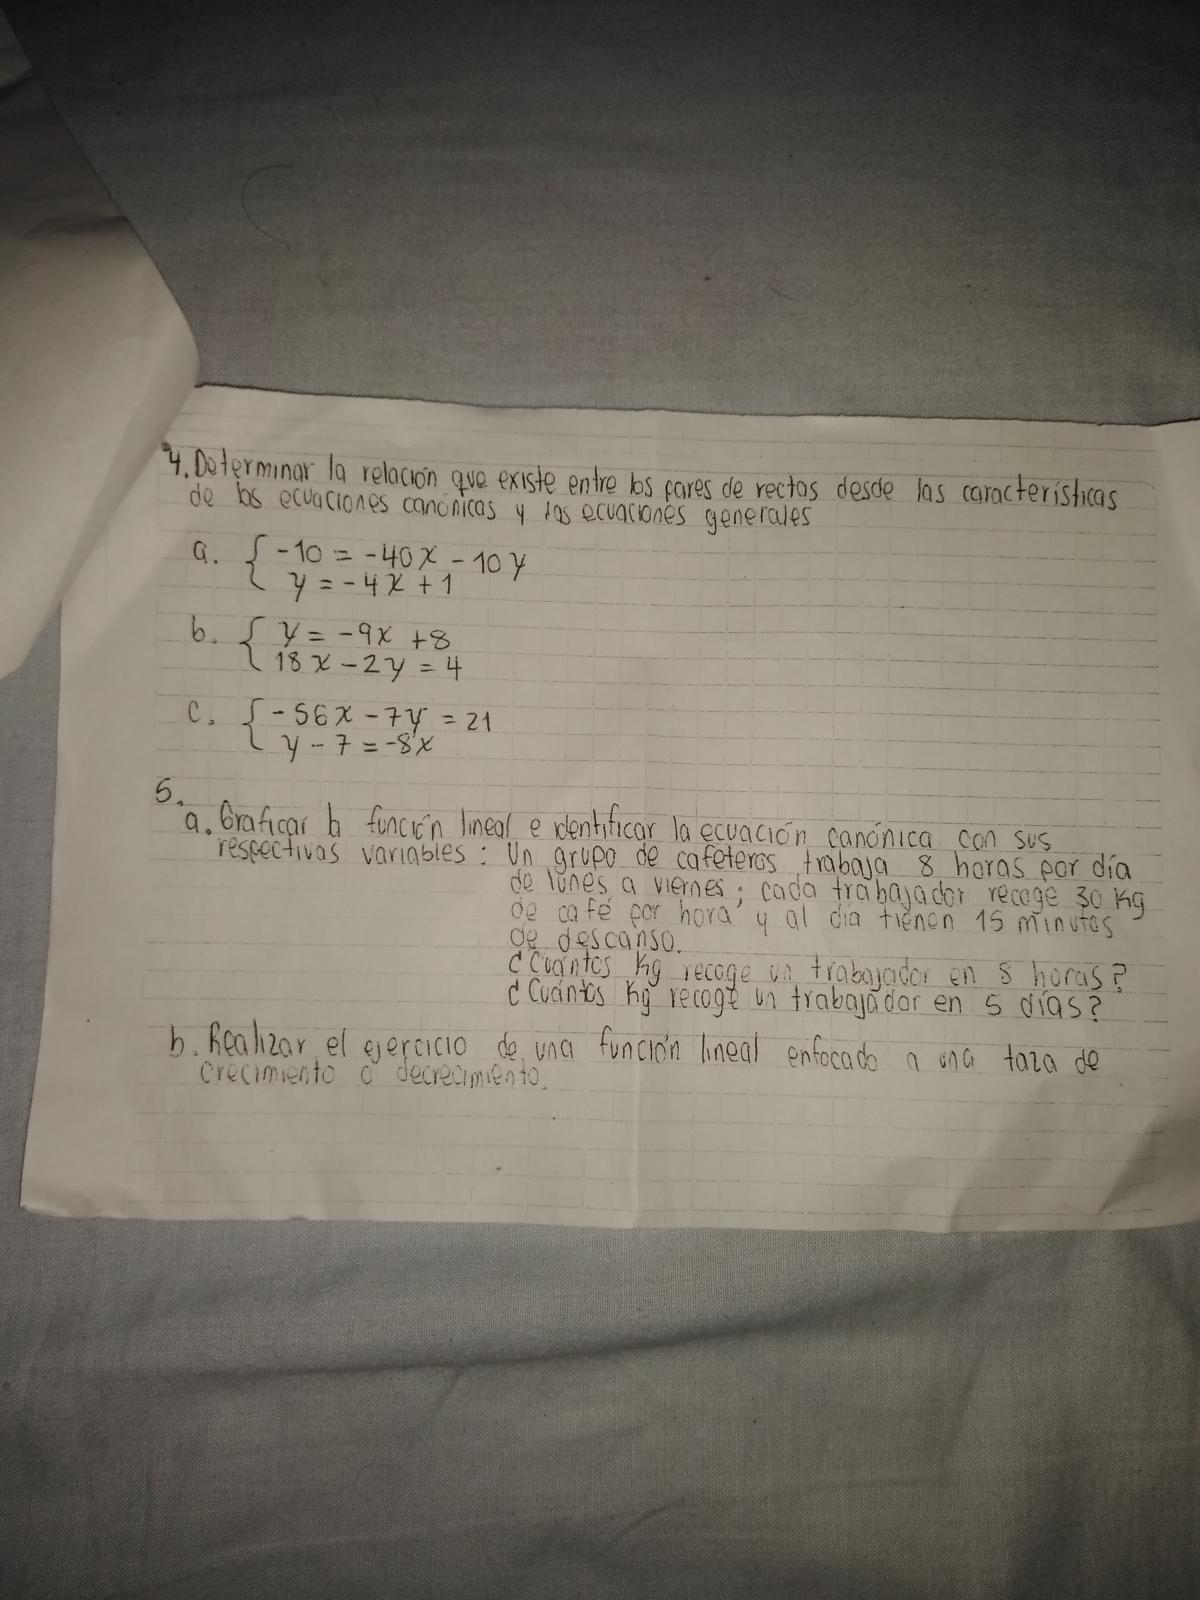 4. Determinar la relación que existe entre los pares de rectas desde las características
de las ecuaciones canónicas y las ecuaciones generales
a. { -10 = -40x - 10y
y = -4x + 1
b. { y = -9x + 8
18x - 2y = 4
c. { -56x - 7y = 21
y - 7 = -8x
5.
a. Graficar la función lineal e identificar la ecuación canónica con sus
respectivas variables: Un grupo de cafeteros trabaja 8 horas por día
de lunes a viernes; cada trabajador recoge 30 Kg
de café por hora y al día tienen 15 minutos
de descanso.
¿Cuántos Kg recoge un trabajador en 8 horas?
¿Cuántos Kg recoge un trabajador en 5 días?
b. Realizar el ejercicio de una función lineal enfocado a una taza de
crecimiento o decrecimiento.